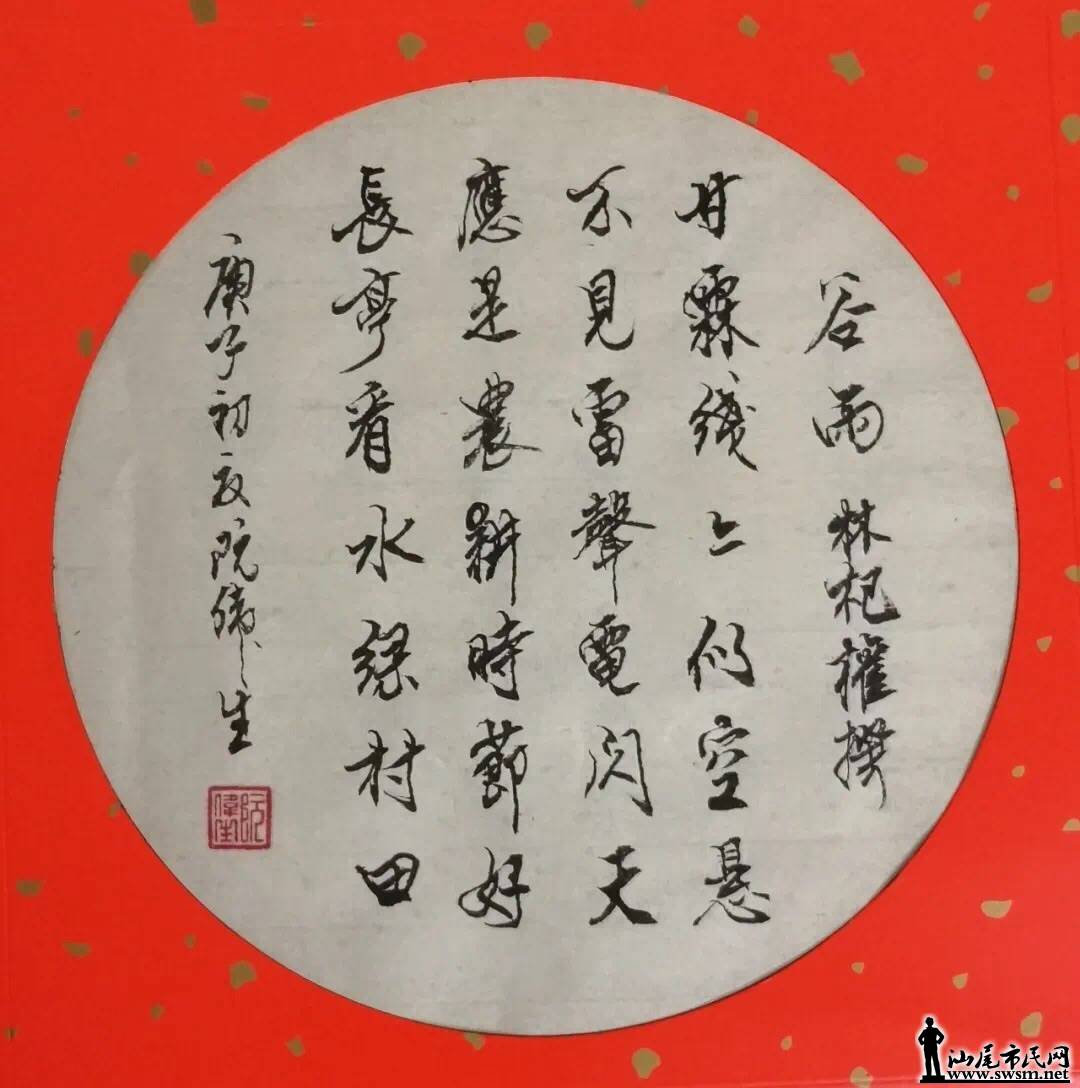 谷雨 林杞權撰
甘霖线〻似空悬
不見雷聲電闪天
應是農耕時節好
長亭看水绕村田
庚子初夏阮偉生
阮偉生
汕尾市民网
www.swsm.net